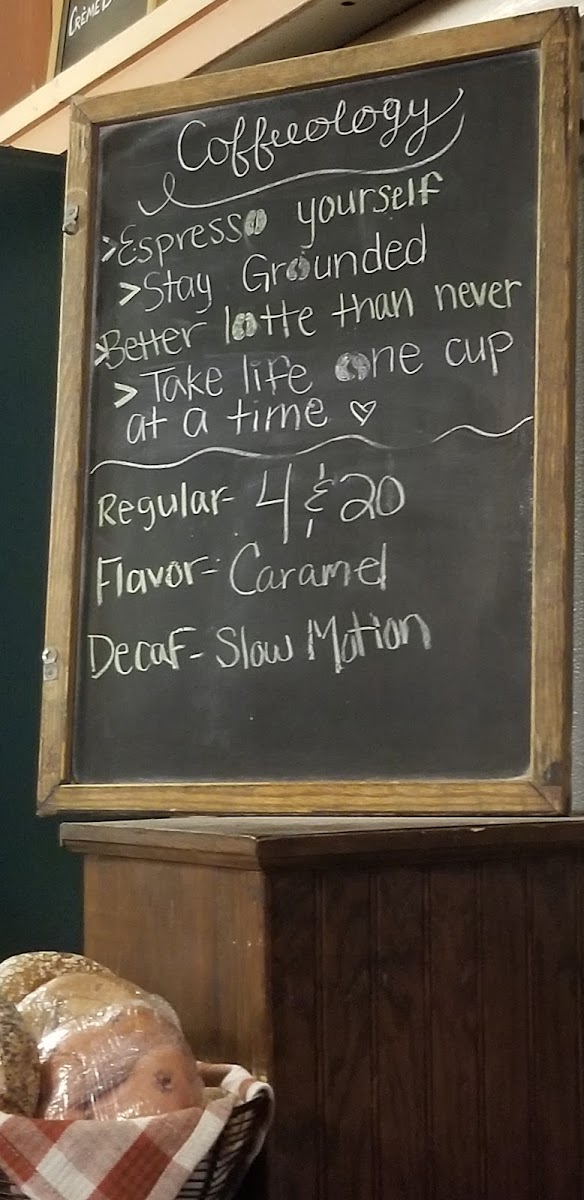 Coffeeology
>Espresso yourself
>Stay Grounded
>Better latte than never
>Take life one cup
at a time ♡
Regular- 4 & 20
Flavor- Caramel
Decaf- Slow Motion